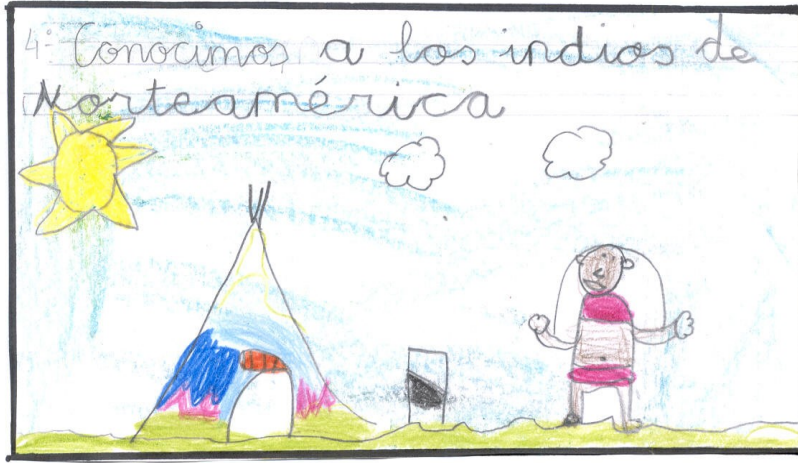 4º Conocimos a los indios de
Norteamérica